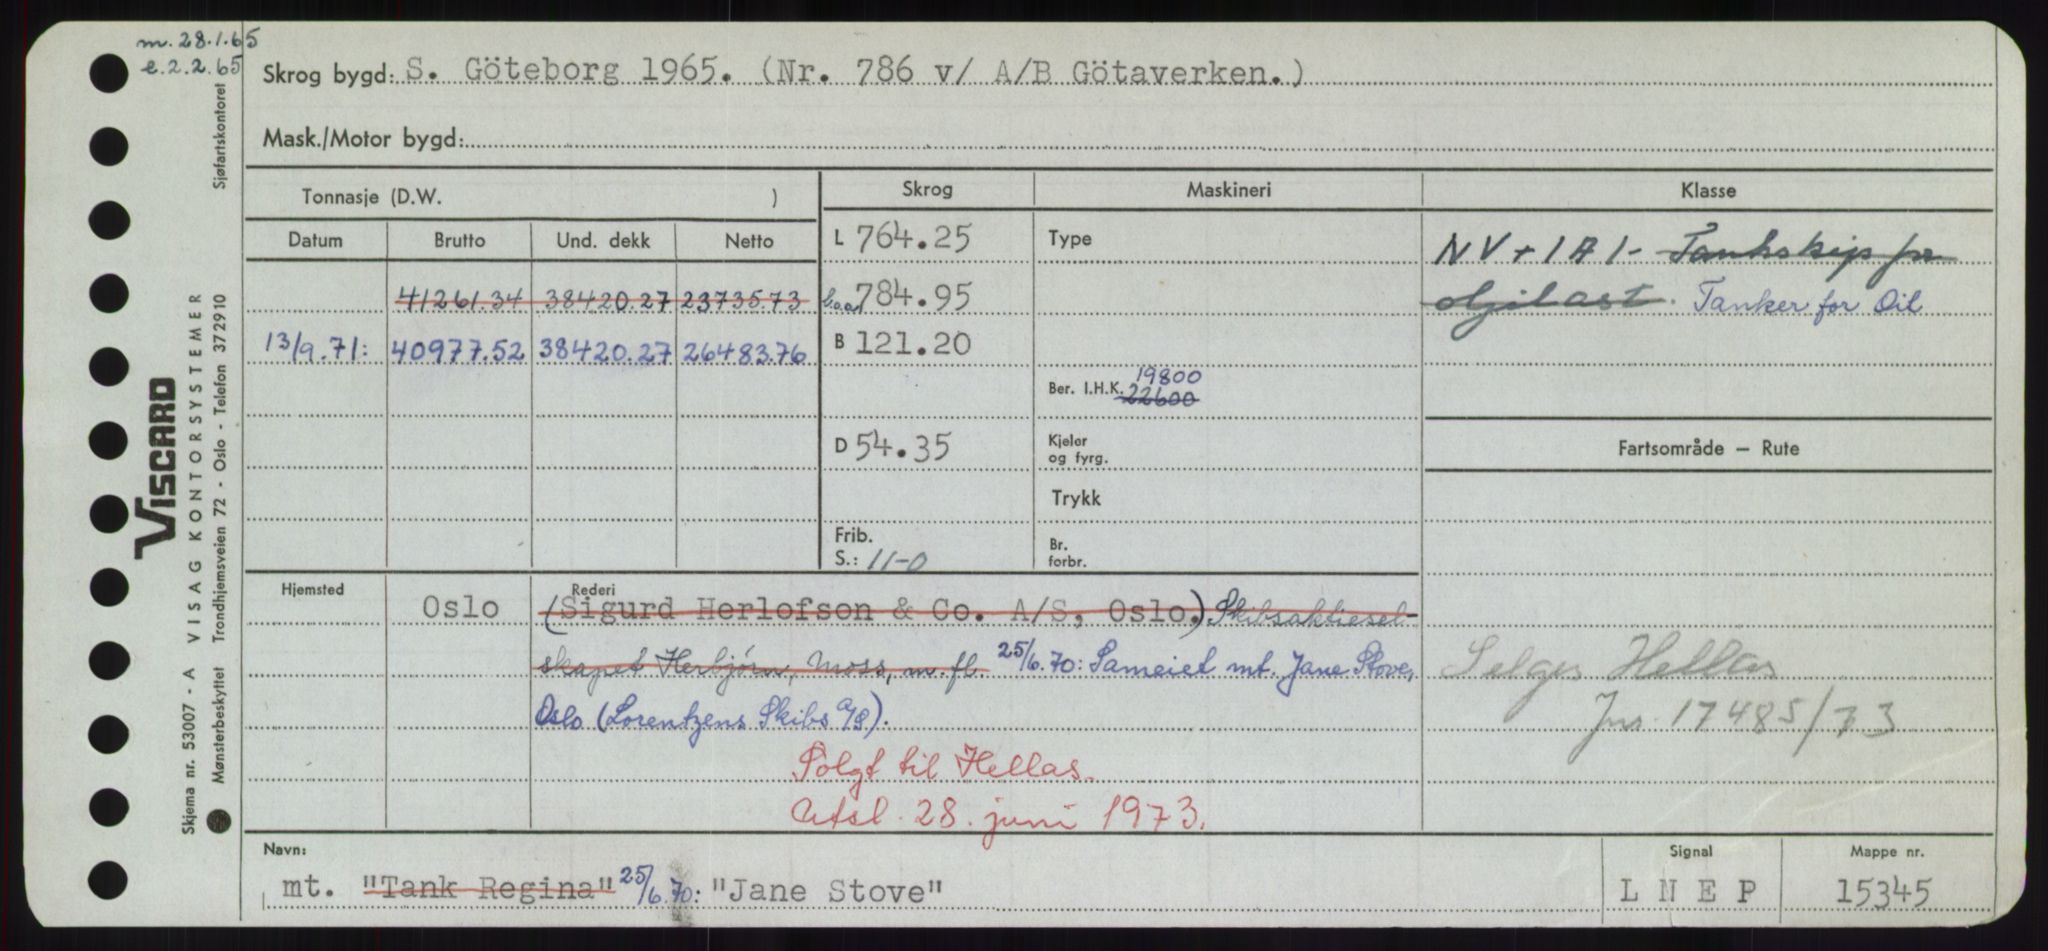 m. 28.1.65
e. 2.2.65
Skrog bygd: S. Göteborg 1965. (Nr. 786 v/ A/B Götaverken.)
Mask./Motor bygd:
Tonnasje (D.W. )
Skrog
Maskineri
Klasse
Datum Brutto Und. dekk Netto
L 764.25
Type
NV + 1A1 - Tankskip for
41261.34 38420.27 23735.73
baa 784.95
oljelast. Tanker for Oil
13/9.71: 40977.52 38420.27 26483.76
B 121.20
Ber. I.H.K. 19800
22600
D 54.35
Kjeler
og fyrg.
Fartsområde – Rute
Trykk
Frib.
S.: 11-0
Br.
forbr.
Hjemsted
Oslo
Rederi
(Sigurd Herlofson & Co. A/S, Oslo.) Skibsaktiesel-
skapet Herbjörn, Moss, m.fl. 25/6.70: Sameiet mt. Jane Stove,
Oslo (Lorentzens Skibs A/S).
Solgt til Hellas.
Atsl. 28. juni 1973.
Selges Hellas
Jnr. 17485/73
Navn:
mt. "Tank Regina" 25/6.70: "Jane Stove"
Signal
LNEP
Mappe nr.
15345
Sjøfartskontoret
VISCARD
VISAG KONTORSYSTEMER
Trondhjemsveien 72 - Oslo - Telefon 372910
Skjema nr. 53007 - A
Mønsterbeskyttet